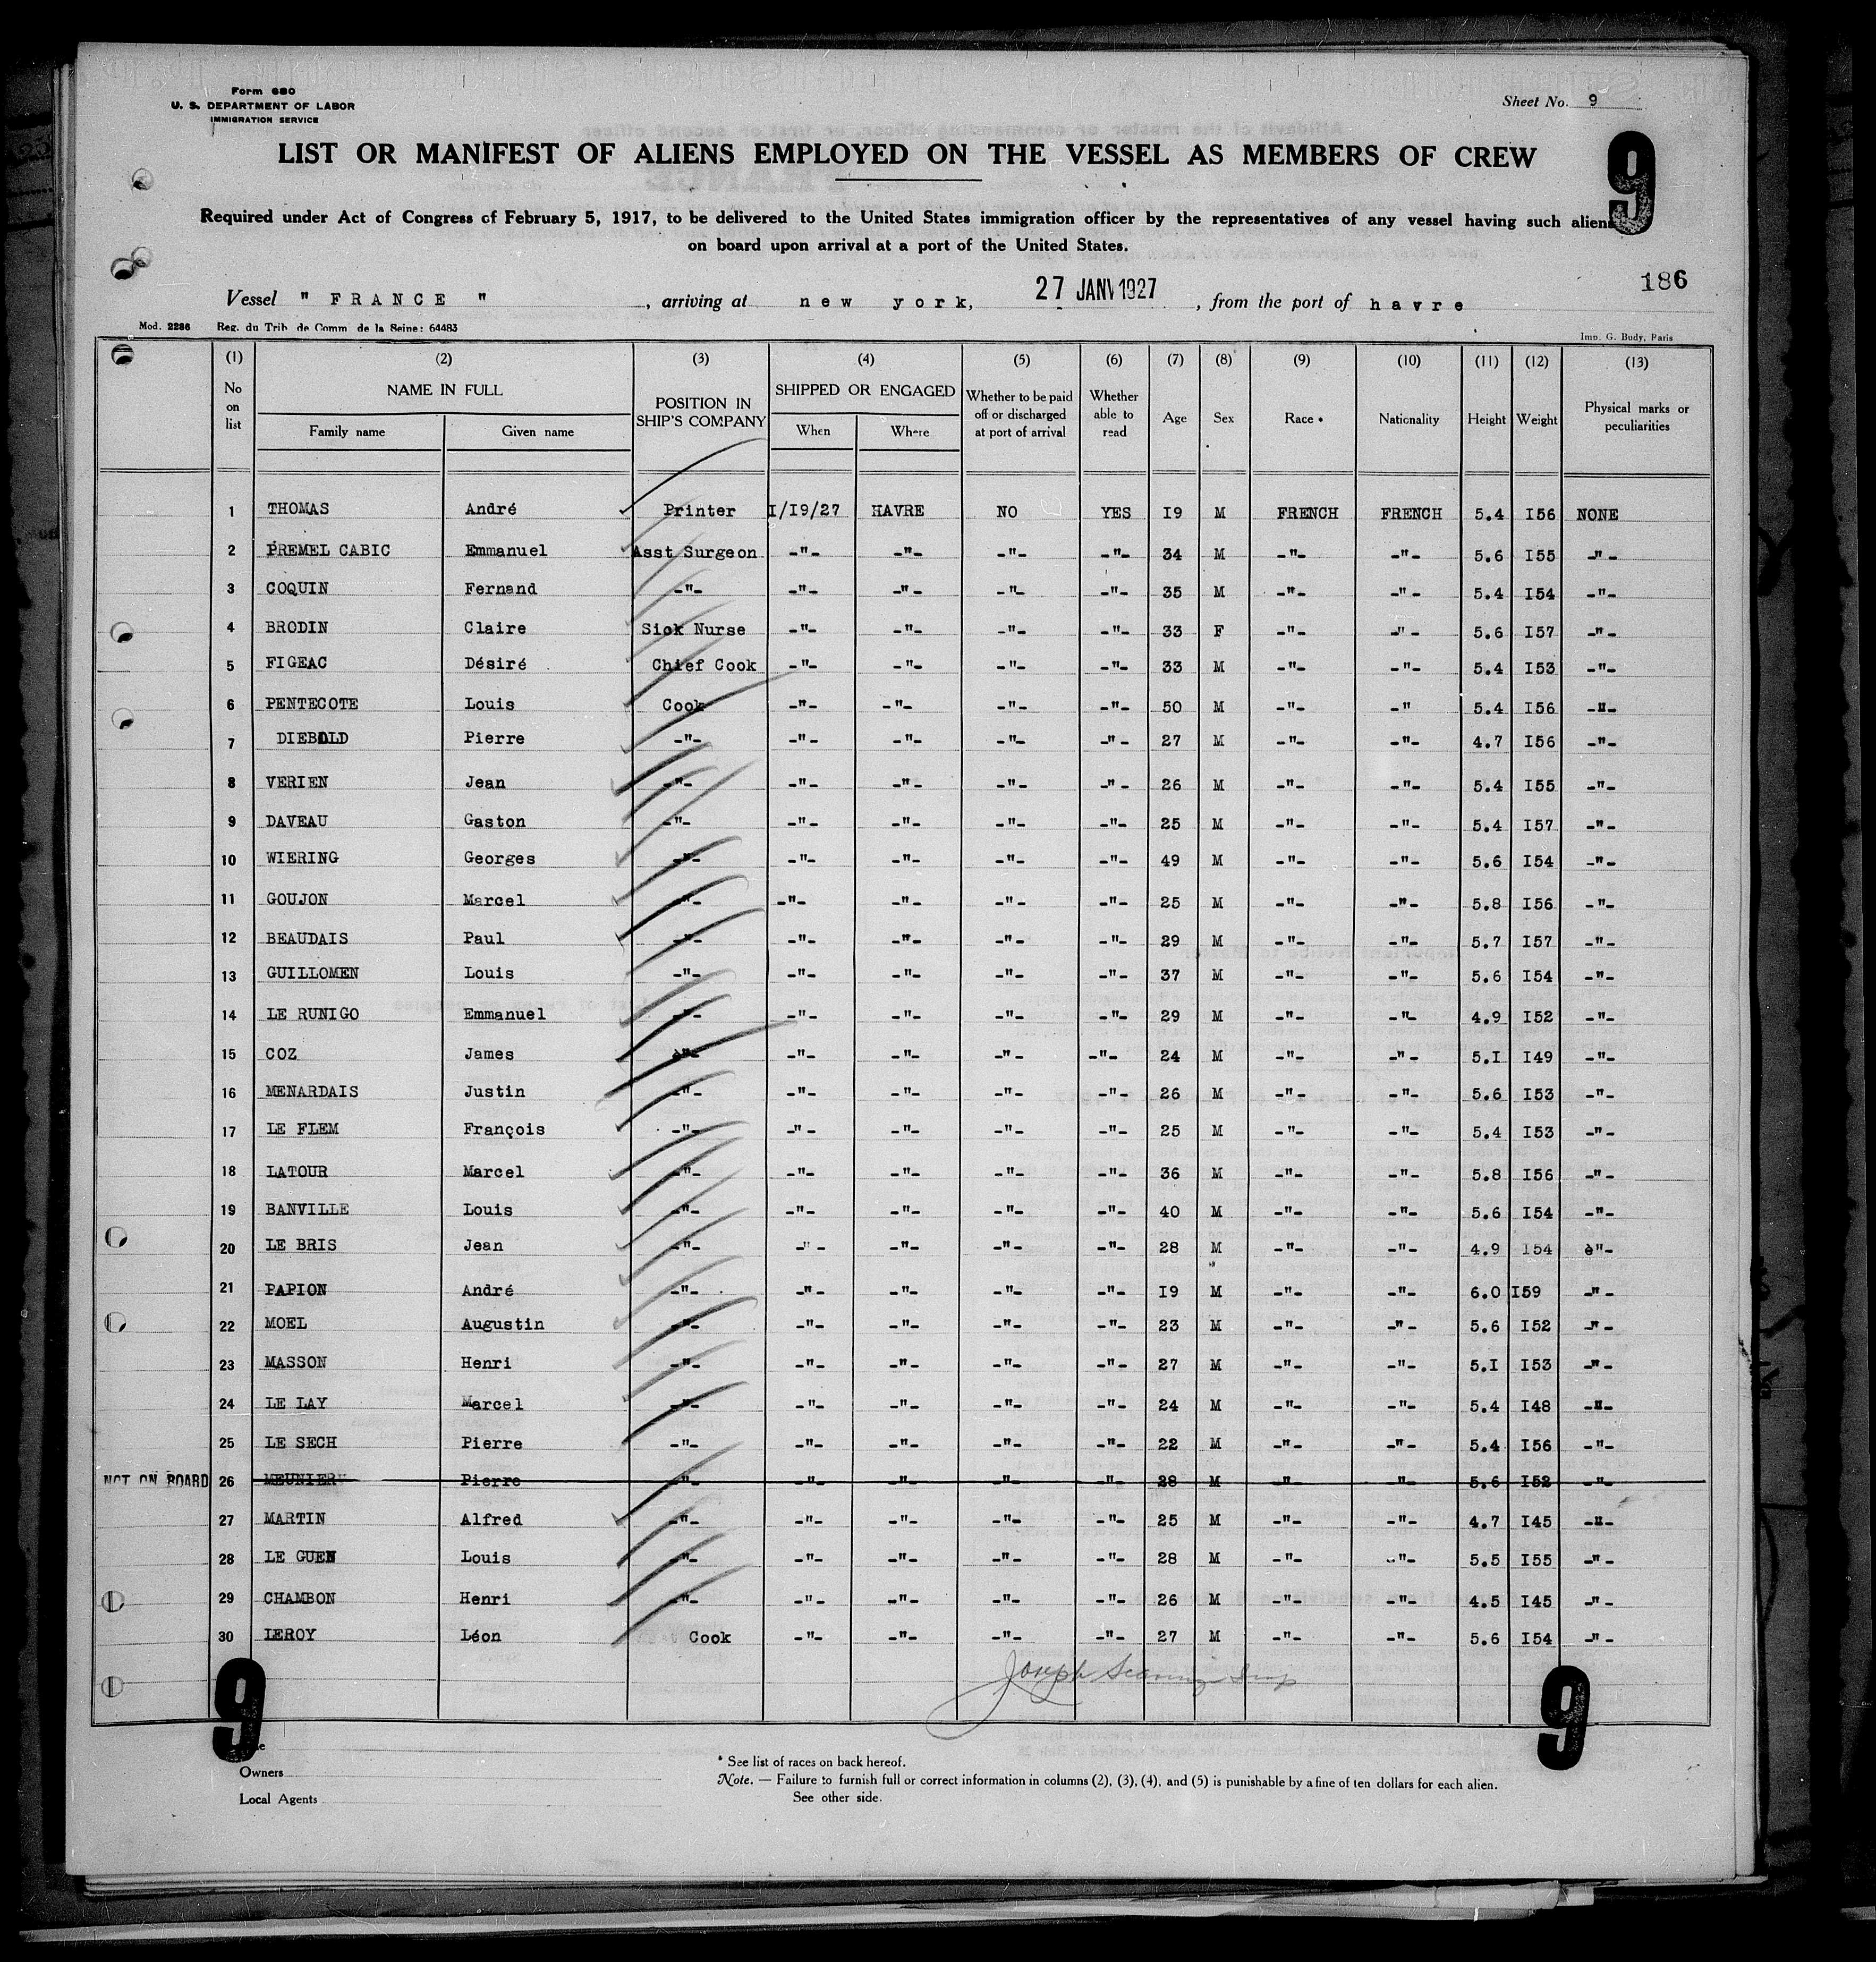 Form 680
U. S. DEPARTMENT OF LABOR
IMMIGRATION SERVICE
Sheet No. 9
9
LIST OR MANIFEST OF ALIENS EMPLOYED ON THE VESSEL AS MEMBERS OF CREW
Required under Act of Congress of February 5, 1917, to be delivered to the United States immigration officer by the representatives of any vessel having such aliens
on board upon arrival at a port of the United States.
186
Vessel " FRANCE " , arriving at new york, 27 JANV 1927 , from the port of havre
Mod. 2286 Reg. du Trib. de Comm. de la Seine: 64483 Imp. G. Budy, Paris
(1) (2) (3) (4) (5) (6) (7) (8) (9) (10) (11) (12) (13)
No on list NAME IN FULL POSITION IN SHIP'S COMPANY SHIPPED OR ENGAGED Whether to be paid off or discharged at port of arrival Whether able to read Age Sex Race * Nationality Height Weight Physical marks or peculiarities
Family name Given name When Where
1 THOMAS André Printer I/I9/27 HAVRE NO YES I9 M FRENCH FRENCH 5.4 I56 NONE
2 PREMEL CABIC Emmanuel Asst Surgeon -"- -"- -"- -"- 34 M -"- -"- 5.6 I55 -"-
3 COQUIN Fernand -"- -"- -"- -"- -"- 35 M -"- -"- 5.4 I54 -"-
4 BRODIN Claire Sick Nurse -"- -"- -"- -"- 33 F -"- -"- 5.6 I57 -"-
5 FIGEAC Désiré Chief Cook -"- -"- -"- -"- 33 M -"- -"- 5.4 I53 -"-
6 PENTECOTE Louis Cook -"- -"- -"- -"- 50 M -"- -" 5.4 I56 -"-
7 DIEBOLD Pierre -"- -"- -"- -"- -"- 27 M -"- -"- 4.7 I56 -"-
8 VERIEN Jean -"- -"- -"- -"- -"- 26 M -"- -"- 5.4 I55 -"-
9 DAVEAU Gaston -"- -"- -"- -"- -"- 25 M -"- -"- 5.4 I57 -"-
10 WIERING Georges -"- -"- -"- -"- -"- 49 M -"- -"- 5.6 I54 -"-
11 GOUJON Marcel -"- -"- -"- -"- -"- 25 M -"- -"- 5.8 I56 -"-
12 BEAUDAIS Paul -"- -"- -"- -"- -"- 29 M -"- -"- 5.7 I57 -"-
13 GUILLOMEN Louis -"- -"- -"- -"- -"- 37 M -"- -"- 5.6 I54 -"-
14 LE RUNIGO Emmanuel -"- -"- -"- -"- -"- 29 M -"- -"- 4.9 I52 -"-
15 COZ James è"- -"- -"- -"- -"- 24 M -"- -"- 5.I I49 -"-
16 MENARDAIS Justin -"- -"- -"- -"- -"- 26 M -"- -"- 5.6 I53 -"-
17 LE FLEM François -"- -"- -"- -"- -"- 25 M -"- -"- 5.4 I53 -"-
18 LATOUR Marcel -"- -"- -"- -"- -"- 36 M -"- -"- 5.8 I56 -"-
19 BANVILLE Louis -"- -"- -"- -"- -"- 40 M -"- -"- 5.6 I54 -"-
20 LE BRIS Jean -"- -"- -"- -"- -"- 28 M -"- -"- 4.9 I54 è"-
21 PAPION André -"- -"- -"- -"- -"- I9 M -"- -"- 6.0 I59 -"-
22 MOEL Augustin -"- -"- -"- -"- -"- 23 M -"- -"- 5.6 I52 -"-
23 MASSON Henri -"- -"- -"- -"- -"- 27 M -"- -"- 5.I I53 -"-
24 LE LAY Marcel -"- -"- -"- -"- -"- 24 M -"- -"- 5.4 I48 -"-
25 LE SECH Pierre -"- -"- -"- -"- -"- 22 M -"- -"- 5.4 I56 -"-
NOT ON BOARD 26 MEUNIER Pierre -"- -"- -"- -"- -"- 28 M -"- -"- 5.6 I52 -"-
27 MARTIN Alfred -"- -"- -"- -"- -"- 25 M -"- -"- 4.7 I45 -"-
28 LE GUEN Louis -"- -"- -"- -"- -"- 28 M -"- -"- 5.5 I55 -"-
29 CHAMBON Henri -"- -"- -"- -"- -"- 26 M -"- -"- 4.5 I45 -"-
30 LEROY Léon Cook -"- -"- -"- -"- 27 M -"- -"- 5.6 I54 -"-
Joseph
9 9
Owners
Local Agents
* See list of races on back hereof.
Note. — Failure to furnish full or correct information in columns (2), (3), (4), and (5) is punishable by a fine of ten dollars for each alien.
See other side.